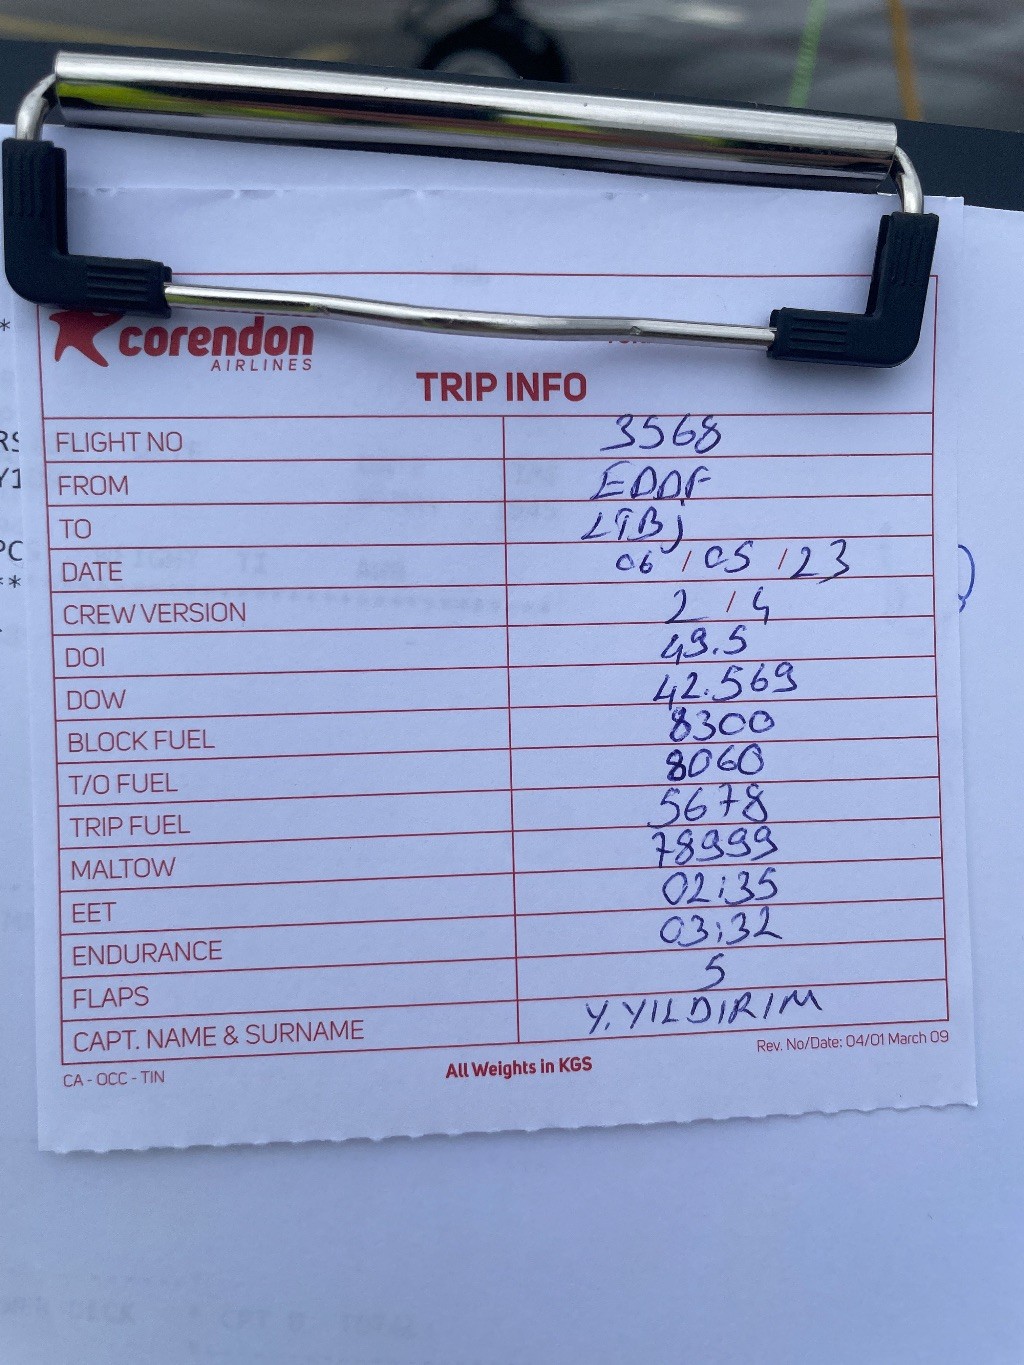 corendon
AIRLINES
TRIP INFO
FLIGHT NO 3568
FROM EDDF
TO LTBj
DATE 06 / 05 / 23
CREW VERSION 2 / 4
DOI 49.5
DOW 42.569
BLOCK FUEL 8300
T/O FUEL 8060
TRIP FUEL 5678
MALTOW 78999
EET 02:35
ENDURANCE 03:32
FLAPS 5
CAPT. NAME & SURNAME Y. YILDIRIM
CA - OCC - TIN All Weights in KGS Rev. No/Date: 04/01 March 09